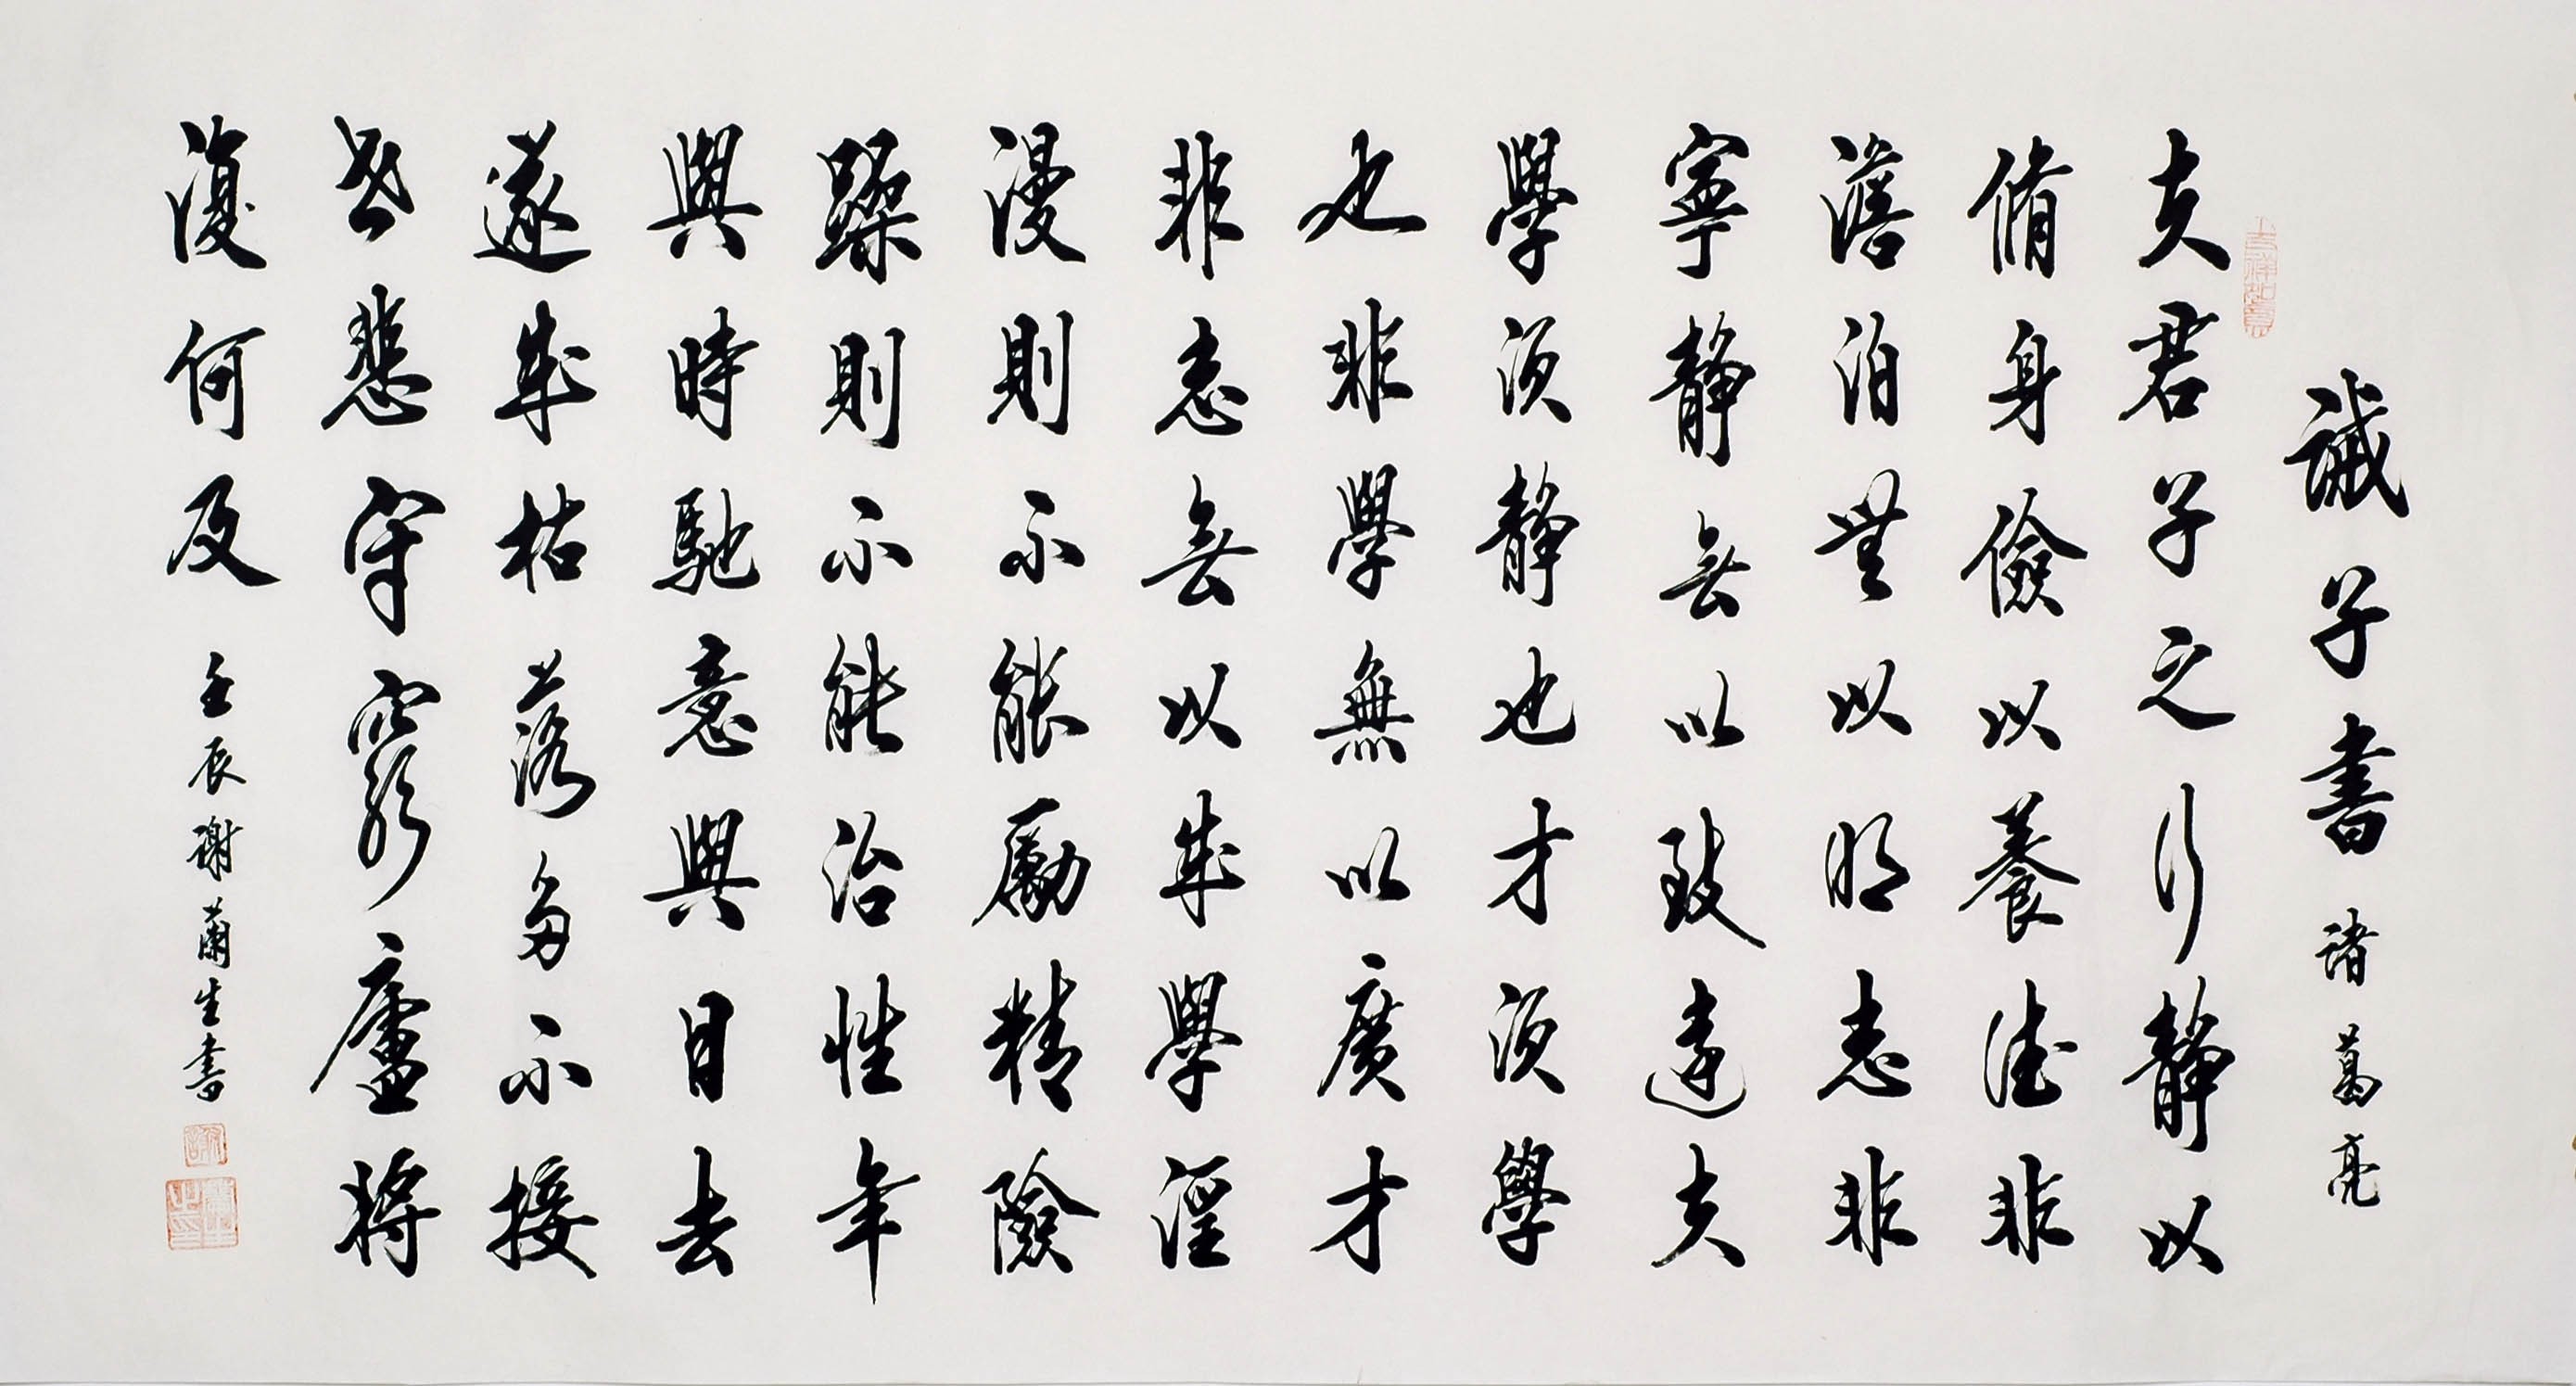 誡子書 諸葛亮
夫君子之行靜以
脩身儉以養德非
澹泊無以明志非
寧靜無以致遠夫
學須靜也才須學
也非學無以廣才
非志無以成學淫
漫則不能勵精險
躁則不能治性年
與時馳意與日去
遂成枯落多不接
世悲守窮廬將
復何及 壬辰謝蘭生書
吉祥如意